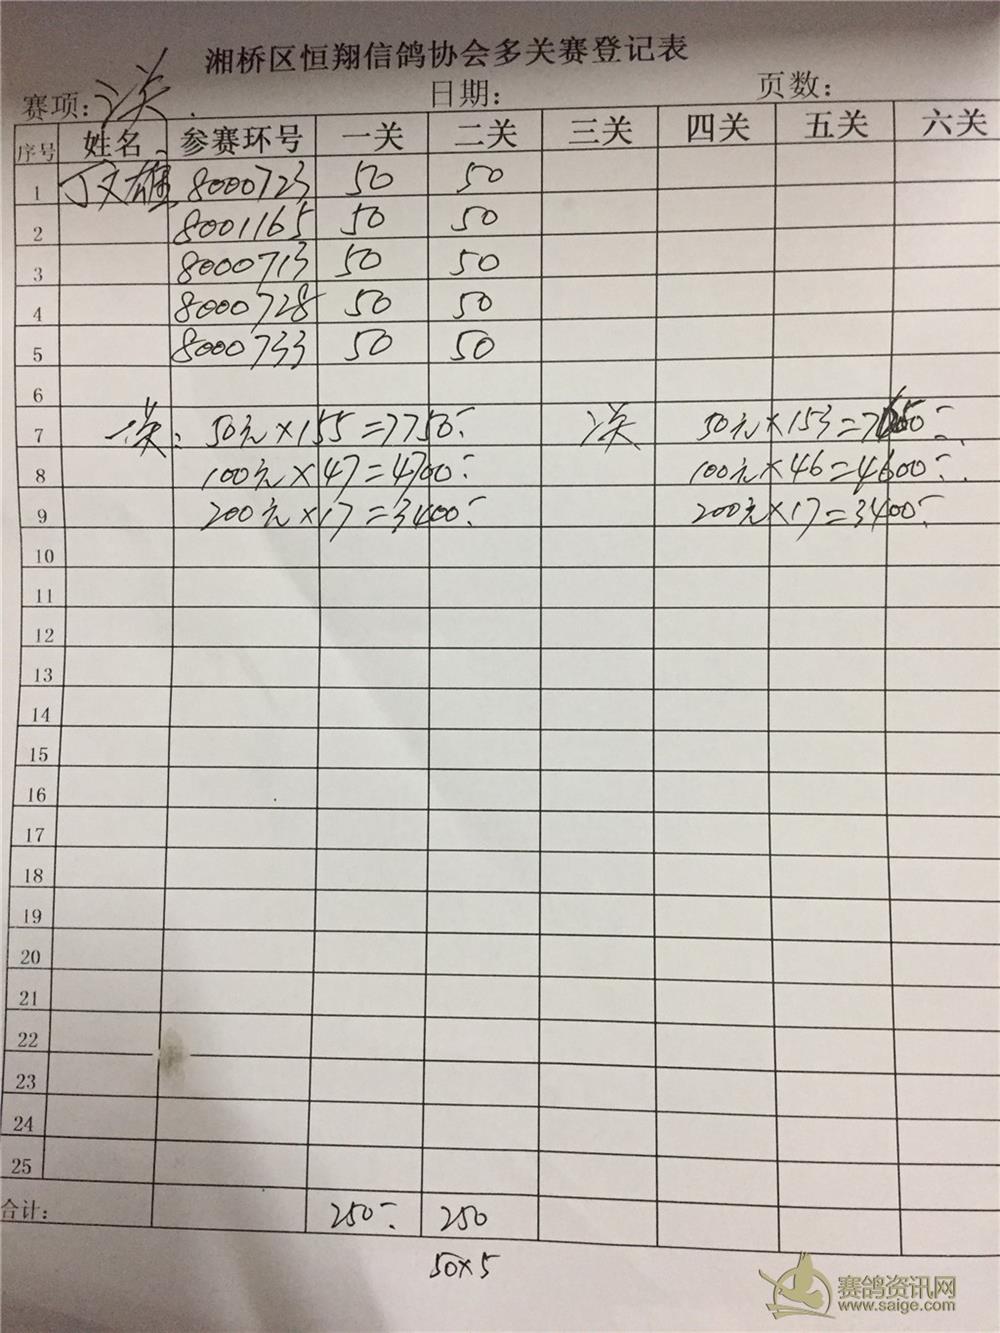 湘桥区恒翔信鸽协会多关赛登记表
赛项: 二关 日期: 页数:
序号 姓名 参赛环号 一关 二关 三关 四关 五关 六关
1 丁文雄 8000723 50 50
2 8001165 50 50
3 8000713 50 50
4 8000728 50 50
5 8000733 50 50
6
7 一关: 50元×155=7750 二关 50元×153=7650
8 100元×47=4700 100元×46=4600
9 200元×17=3400 200元×17=3400
10
11
12
13
14
15
16
17
18
19
20
21
22
23
24
25
合计: 250 250
50×5
赛鸽资讯网
www.saige.com